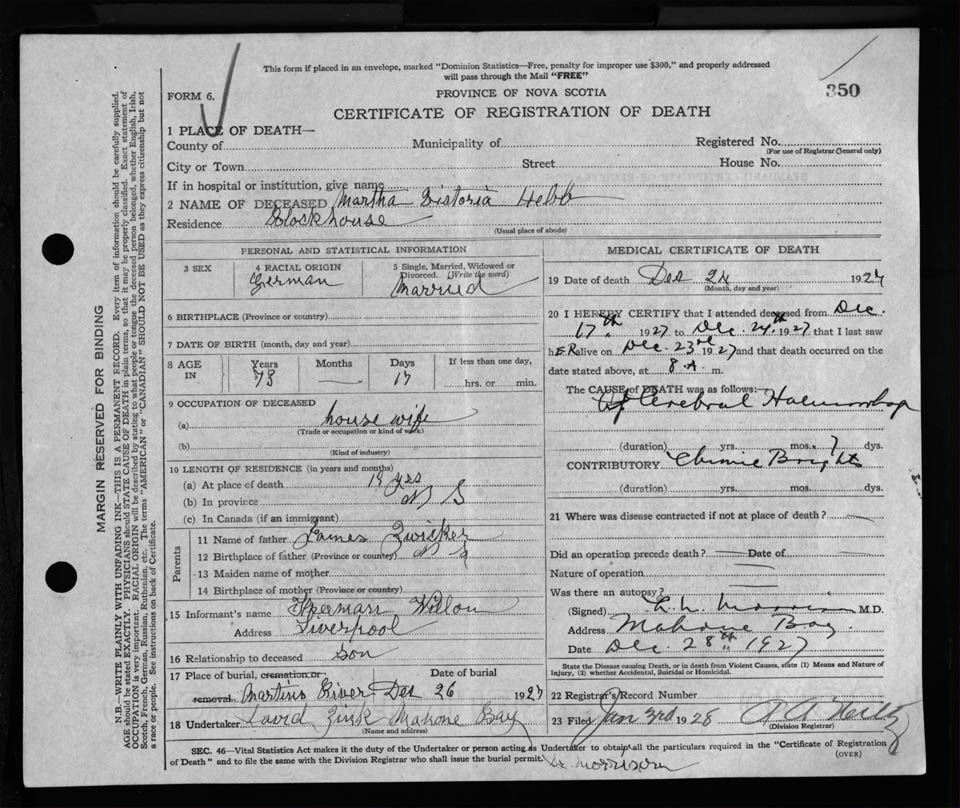 This form if placed in an envelope, marked "Dominion Statistics—Free, penalty for improper use $300," and properly addressed
will pass through the Mail "FREE"
FORM 6.
PROVINCE OF NOVA SCOTIA
350
CERTIFICATE OF REGISTRATION OF DEATH
1 PLACE OF DEATH—
County of Municipality of Registered No.
(For use of Registrar General only)
City or Town Street House No.
If in hospital or institution, give name
2 NAME OF DECEASED Martha Victoria Hebb
Residence Blockhouse
(Usual place of abode)
PERSONAL AND STATISTICAL INFORMATION
3 SEX 4 RACIAL ORIGIN 5 Single, Married, Widowed or
Divorced. (Write the word)
German Married
6 BIRTHPLACE (Province or country)
7 DATE OF BIRTH (month, day and year)
8 AGE IN Years Months Days If less than one day,
73 — 17 hrs. or min.
9 OCCUPATION OF DECEASED
(a) house wife
(Trade or occupation or kind of work)
(b)
(Kind of industry)
10 LENGTH OF RESIDENCE (in years and months)
(a) At place of death yrs
(b) In province N S
(c) In Canada (if an immigrant)
Parents
11 Name of father James Zwicker
12 Birthplace of father (Province or country) N S
13 Maiden name of mother
14 Birthplace of mother (Province or country)
15 Informant's name
Address Liverpool
16 Relationship to deceased Son
17 Place of burial, cremation or Date of burial
removal Martins River Dec 26 1927
18 Undertaker David Zink Mahone Bay
(Name and address)
MEDICAL CERTIFICATE OF DEATH
19 Date of death Dec 24 1927
(Month, day and year)
20 I HEREBY CERTIFY that I attended deceased from Dec.
17th 1927 to Dec. 24th 1927 that I last saw
hER alive on Dec. 23rd 1927 and that death occurred on
date stated above, at 8 A. m.
The CAUSE of DEATH was as follows:
Cerebral
(duration) yrs. mos. 7 dys.
CONTRIBUTORY Chronic Brights
(duration) yrs. mos. dys.
21 Where was disease contracted if not at place of death?
Did an operation precede death? — Date of
Nature of operation —
Was there an autopsy? —
(Signed) M.D.
Address Mahone Bay
Date Dec. 28th 1927
State the Disease causing Death, or in death from Violent Causes, state (1) Means and Nature of
Injury, (2) whether Accidental, Suicidal or Homicidal.
22 Registrar's Record Number
23 Filed Jan 3rd 1928
(Division Registrar)
SEC. 46—Vital Statistics Act makes it the duty of the Undertaker or person acting as Undertaker to obtain all the particulars required in the "Certificate of Registration
of Death" and to file the same with the Division Registrar who shall issue the burial permit.
(OVER)
MARGIN RESERVED FOR BINDING
N.B.—WRITE PLAINLY WITH UNFADING INK—THIS IS A PERMANENT RECORD. Every item of information should be carefully supplied.
AGE should be stated EXACTLY. PHYSICIANS should STATE CAUSE OF DEATH in plain terms, so that it may be properly classified. Exact statement of
OCCUPATION is very important. RACIAL ORIGIN will be described by stating to what people or tongue the deceased person belonged, whether English, Irish,
Scotch, French, German, Russian, Ruthenian, etc. The terms "AMERICAN" or "CANADIAN" SHOULD NOT BE USED as they express citizenship but not
a race or people. See instructions on back of Certificate.